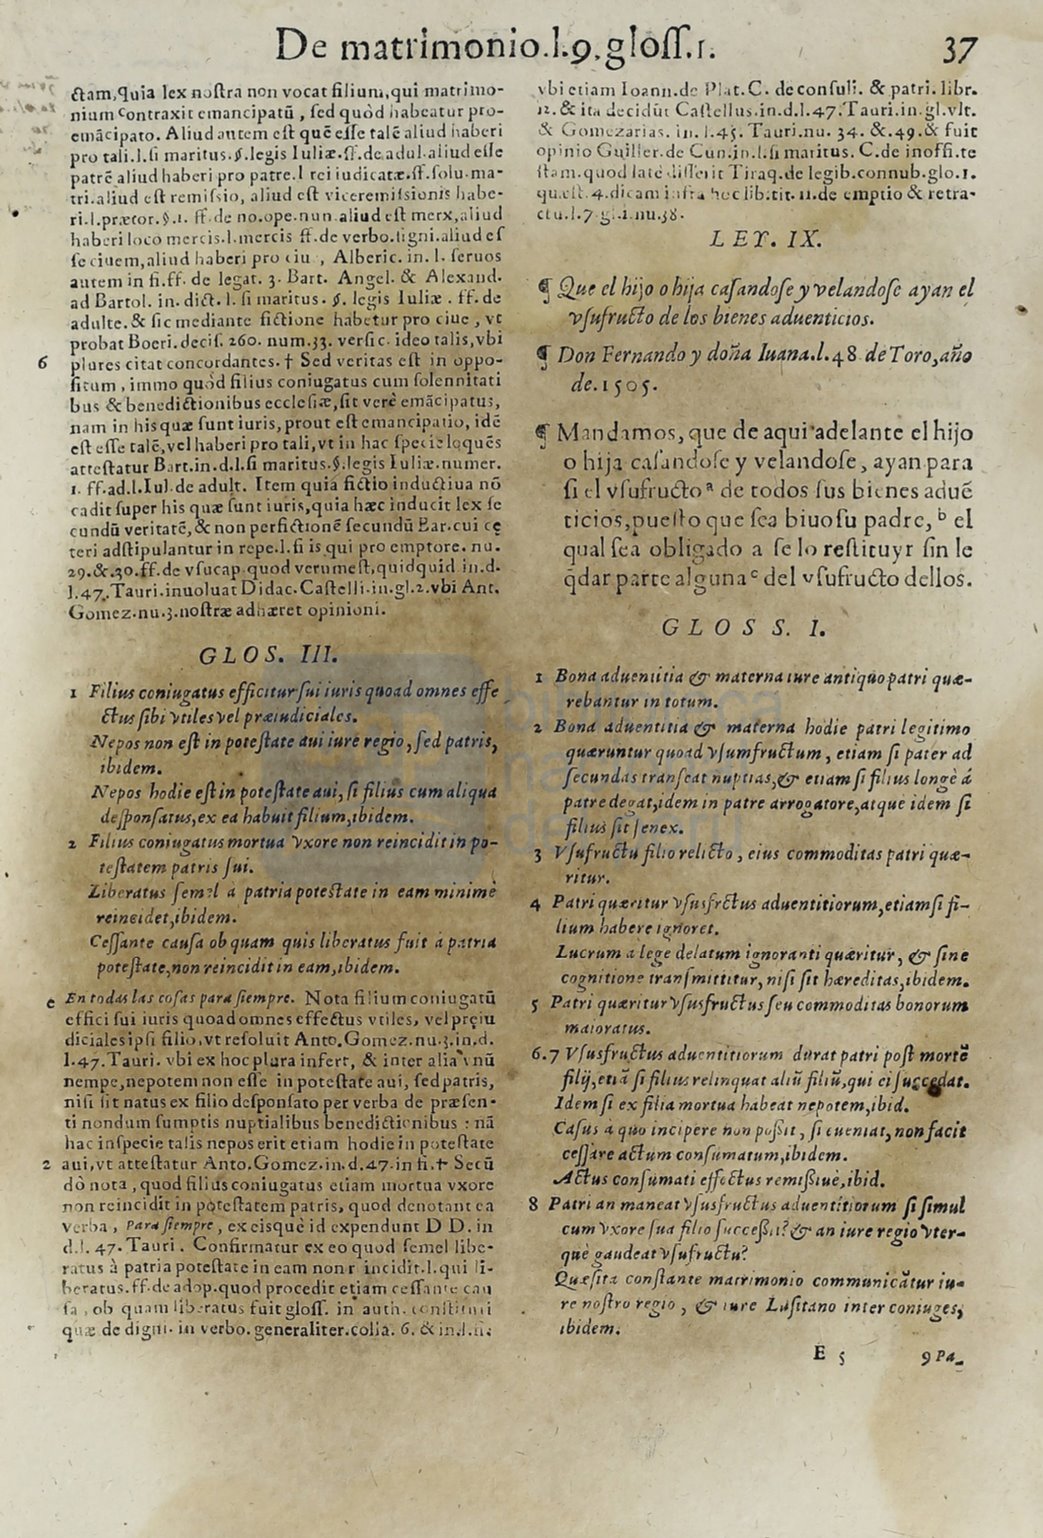 De matrimonio.l.9.gloſſ.1.
37
ctam,quia lex noſtra non vocat filium,qui matrimo-
nium contraxit emancipatũ , ſed quòd habeatur pro-
emãcipato. Aliud autem eſt quẽ eſſe talẽ aliud haberi
pro tali.l.ſi maritus.§.legis Iuliæ.ff.de adul.aliud eſſe
patrẽ aliud haberi pro patre.l rei iudicatæ.ff.ſolu.ma-
tri.aliud eſt remiſsio, aliud eſt viceremiſsionis habe-
ri.l.prætor.§.1. ff.de no.ope.nun.aliud eſt merx,aliud
haberi loco mercis.l.mercis ff.de verbo.ſigni.aliud eſ
ſe ciuem,aliud haberi pro ciu , Alberic. in. l. ſeruos
autem in fi.ff. de legat. 3. Bart. Angel. & Alexand.
ad Bartol. in. dict. l. ſi maritus. §. legis Iuliæ . ff. de
adulte.& ſic mediante fictione habetur pro ciue , vt
probat Boeri.deciſ. 260. num.33. verſic. ideo talis,vbi
6 plures citat concordantes.† Sed veritas eſt in oppo-
ſitum , immo quòd filius coniugatus cum ſolennitati
bus & benedictionibus eccleſiæ,ſit verè emãcipatus,
nam in his quæ ſunt iuris, prout eſt emancipatio, idẽ
eſt eſſe talẽ,vel haberi pro tali,vt in hac ſpecie loquẽs
atteſtatur Bart.in.d.l.ſi maritus.§.legis Iuliæ.numer.
1. ff.ad.l.Iul.de adult. Item quia fictio inductiua nõ
cadit ſuper his quæ ſunt iuris,quia hæc inducit lex ſe
cundũ veritatẽ,& non per fictionẽ ſecundũ Bar.cui cę
teri adſtipulantur in repe.l.ſi is qui pro emptore. nu.
29.&.30.ff.de vſucap.quod verum eſt,quidquid in.d.
l.47.Tauri.inuoluat Didac.Caſtelli.in.gl.2.vbi Ant.
Gomez.nu.3.noſtræ adhæret opinioni.
GLOS. III.
1 Filius coniugatus efficitur ſui iuris quoad omnes effe
ctus ſibi vtiles vel præiudiciales.
Nepos non eſt in poteſtate aui iure regio, ſed patris,
ibidem.
Nepos hodie eſt in poteſtate aui, ſi filius cum aliqua
deſponſatus,ex ea habuit filium,ibidem.
2 Filius coniugatus mortua vxore non reincidit in po-
teſtatem patris ſui.
Liberatus ſemel á patria poteſtate in eam minimè
reincidet,ibidem.
Ceſſante cauſa ob quam quis liberatus fuit á patria
poteſtate,non reincidit in eam,ibidem.
c En todas las coſas para ſiempre. Nota filium coniugatũ
effici ſui iuris quoad omnes effectus vtiles, vel pręiu
diciales ipſi filio,vt reſoluit Anto.Gomez.nu.3.in.d.
l.47.Tauri. vbi ex hoc plura infert, & inter alia vnũ
nempe,nepotem non eſſe in poteſtate aui, ſed patris,
niſi ſit natus ex filio deſponſato per verba de præſen-
ti nondum ſumptis nuptialibus benedictionibus : nã
hac in ſpecie talis nepos erit etiam hodie in poteſtate
2 aui,vt atteſtatur Anto.Gomez.in.d.47.in fi.† Secũ
dò nota , quod filius coniugatus etiam mortua vxore
non reincidit in poteſtatem patris, quod denotant ea
verba , para ſiempre , ex eisquè id expendunt D D. in
d.l. 47. Tauri . Confirmatur ex eo quod ſemel libe-
ratus à patria poteſtate in eam non r incidit.l.qui li-
beratus.ff.de adop.quod procedit etiam ceſſante cau
ſa , ob quam liberatus fuit gloſſ. in auth. conſtitui
quæ de digni. in verbo.generaliter.colla. 6. & in.l.fi.
vbi etiam Ioann.de Plat.C. de conſuli. & patri. libr.
12.& ita decidũt Caſtellus.in.d.l.47.Tauri.in.gl.vlt.
& Gomezarias. in. l.45. Tauri.nu. 34. &.49.& fuit
opinio Guiller.de Cun.in.l.ſi maritus. C.de inoffi.te
ſtam.quod latè differit Tiraq.de legib.connub.glo.1.
quæſt.4.dicam infra hoc lib.tit.11.de emptio & retra-
ctu.l.7.gl.1.nu.38.
LEY. IX.
¶ Que el hijo o hija caſandoſe y velandoſe ayan el
vſufructo de los bienes aduenticios.
¶ Don Fernando y doña Iuana.l.48 de Toro,año
de.1505.
¶ Mandamos, que de aqui adelante el hijo
o hija caſandoſe y velandoſe, ayan para
ſi el vſufructo ª de todos ſus bienes aduẽ
ticios,pueſto que ſea biuo ſu padre, ᵇ el
qual ſea obligado a ſe lo reſtituyr ſin le
q̃dar parte alguna ᶜ del vſufructo dellos.
GLOSS. I.
1 Bona aduentitia & materna iure antiquo patri quæ-
rebantur in totum.
2 Bona aduentitia & materna hodie patri legitimo
quæruntur quoad vſumfructum , etiam ſi pater ad
ſecundas tranſeat nuptias,& etiam ſi filius longè á
patre degat,idem in patre arrogatore,atque idem ſi
filius ſit ſenex.
3 Vſufructu filio relicto , eius commoditas patri quæ-
ritur.
4 Patri quæritur vſusfrctus aduentitiorum,etiamſi fi-
lium habere ignoret.
Lucrum a lege delatum ignoranti quæritur, & ſine
cognitione tranſmittitur, niſi ſit hæreditas,ibidem.
5 Patri quæritur vſusfructus ſeu commoditas bonorum
maioratus.
6.7 Vſusfructus aduentitiorum durat patri poſt mortẽ
filij,etiã ſi filius relinquat aliũ filiũ,qui ei ſuccedat.
Idem ſi ex filia mortua habeat nepotem,ibid.
Caſus a quo incipere non poſsit , ſi eueniat, non facit
ceſſare actum conſumatum,ibidem.
Actus conſumati effectus remiſsiuè,ibid.
8 Patri an maneat vſusfructus aduentitiorum ſi ſimul
cum vxore ſua filio ſucceſsit? & an iure regio vter-
què gaudeat vſufructu?
Quæſita conſtante matrimonio communicãtur iu-
re noſtro regio , & iure Luſitano inter coniuges,
ibidem.
E 5
9 Pa-